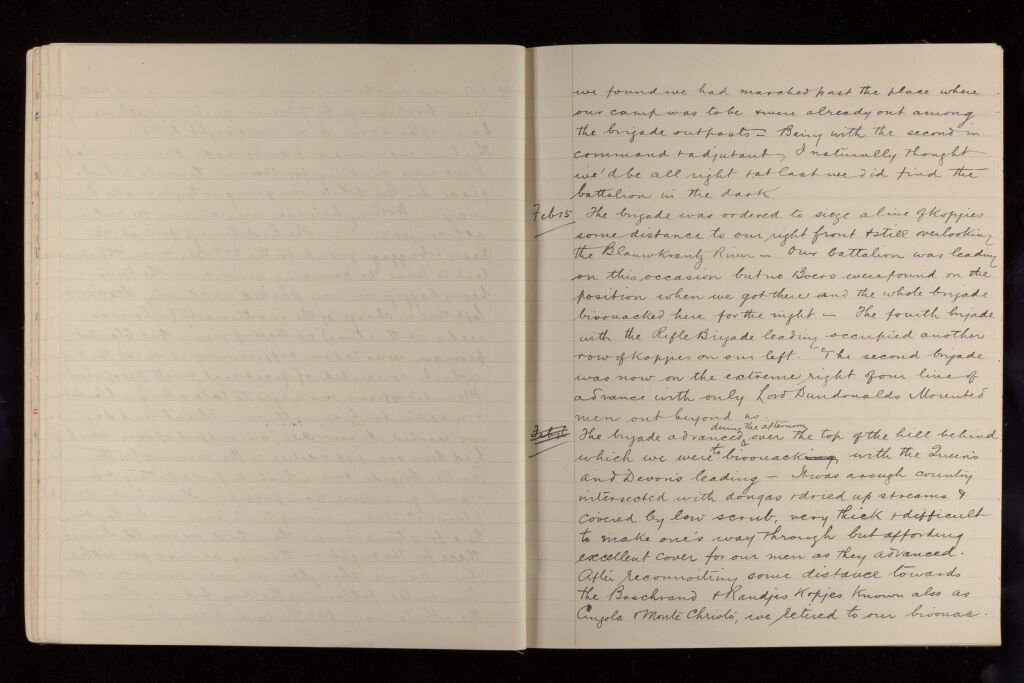 we found we had marched past the place where
our camp was to be & were already out among
the brigade outposts – Being with the second in
command & adjutant, I naturally thought
we'd be all right & at last we did find the
battalion in the dark.
Feb 15 The brigade was ordered to sieze a line of Kopjies
some distance to our right front & still overlooking
the Blauwkrantz River – Our battalion was leading
on this occasion but no Boers were found on the
position when we got there and the whole brigade
bivouacked here for the night – The fourth brigade
with the Rifle Brigade leading occupied another
row of Kopjes on our left. The second brigade
was now on the extreme right of our line of
advance with only Lord Dundonalds Mounted
men out beyond us.
The brigade advanced during the afternoon over the top of the hill behind
which we were to bivouack, with the Queens
and Devons leading – It was a rough country
intersected with dongas & dried up streams &
covered by low scrub, very thick & difficult
to make one's way through but affording
excellent cover for our men as they advanced.
After reconnoitring some distance towards
the Boschrand & Randjes Kopjes known also as
Cingola & Monte Christo, we retired to our bivouac.